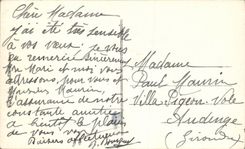 Chère Madame
J'ai été très sensible
à vos vœux. Je vous
en remercie sincèrement
Mon Mari et moi vous
adressons, pour vous et
Maurin,
l'assurance de notre
constante amitié
le plaisir
de vous
Baisers affectueux
Madame
Paul Maurin
Villa Pigeon-Vole
Audenge
(Gironde)